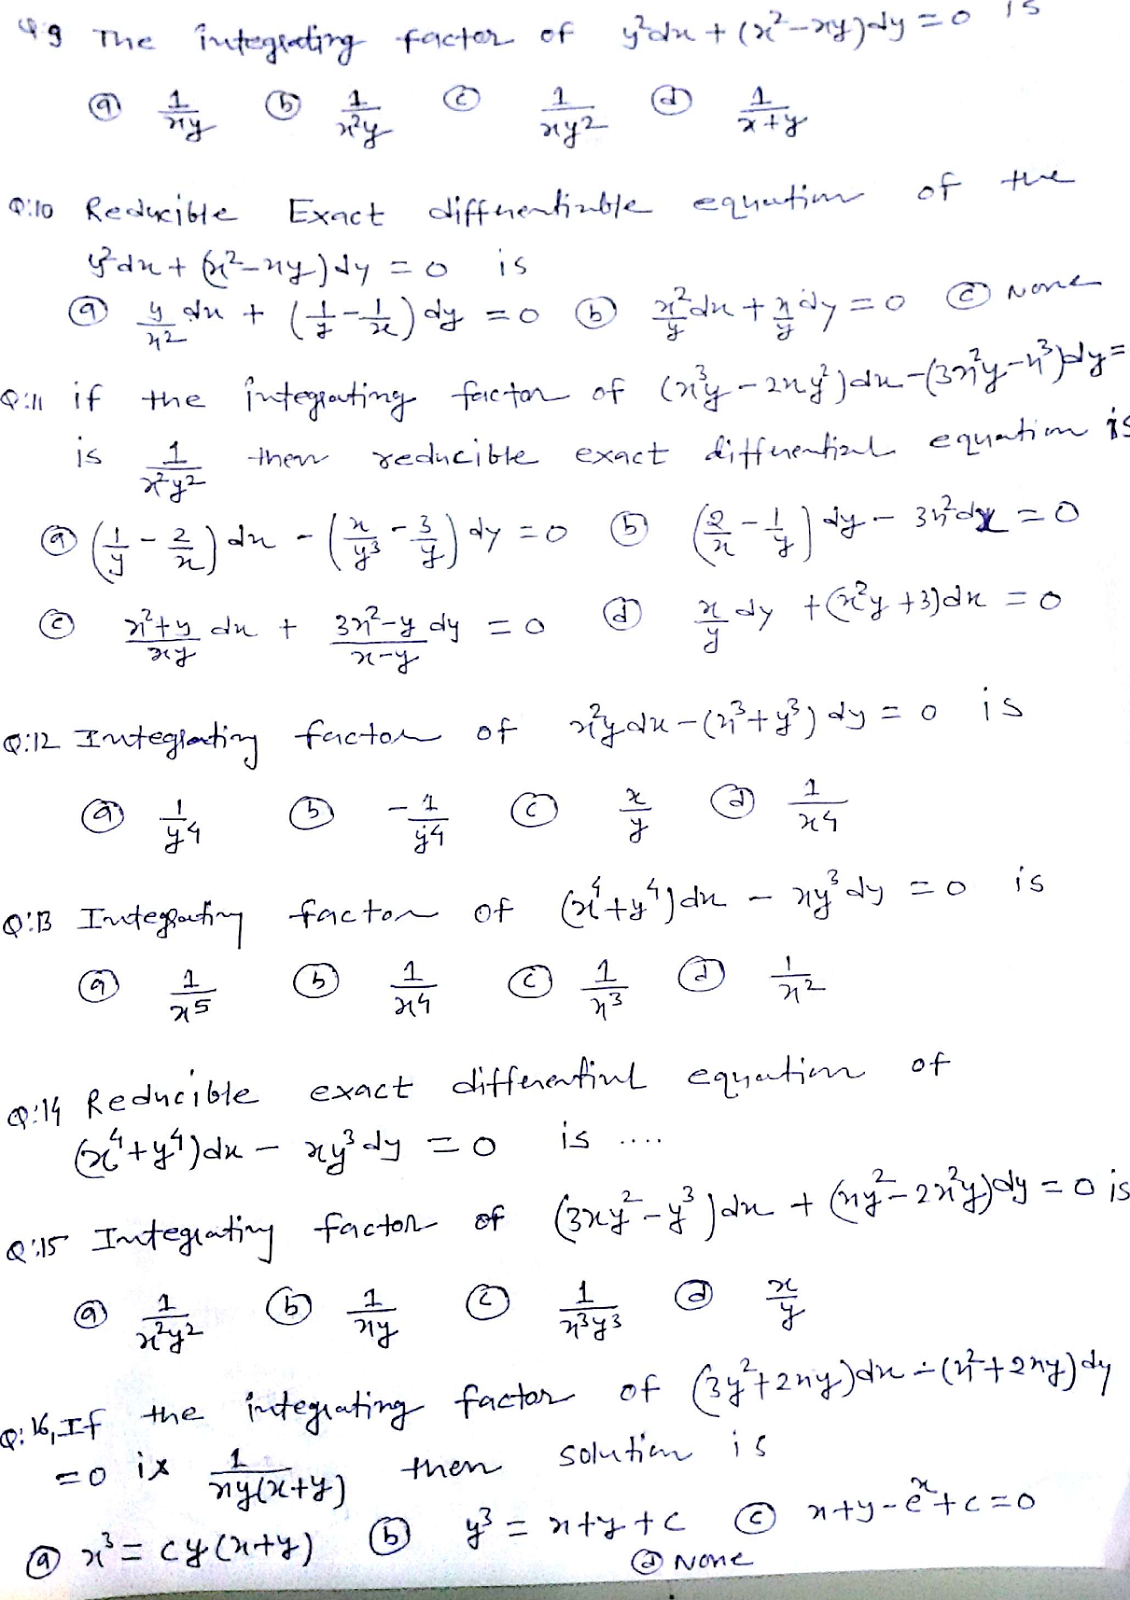 Q9 The integrating factor of y²dx + (x²-xy)dy = 0 is
(a) 1/xy (b) 1/x²y (c) 1/xy² (d) 1/x+y
Q:10 Reducible Exact differentiable equation of the
y²dx + (x²-xy)dy = 0 is
(a) y/x² dx + (1/y - 1/x) dy = 0 (b) x²/y dx + x/y dy = 0 (c) None
Q:11 if the integrating factor of (x³y - 2xy²)dx - (3x²y - x³)dy =
is 1/x²y² then reducible exact differential equation is
(a) (1/y - 2/x) dx - (x/y³ - 3/y) dy = 0 (b) (2/x - 1/y) dy - 3x²dx = 0
(c) x²+y/xy dx + 3x²-y/x-y dy = 0 (d) x/y dy + (x²y + 3)dx = 0
Q:12 Integrating factor of x²y dx - (x³+y³) dy = 0 is
(a) 1/y⁴ (b) -1/y⁴ (c) x/y (d) 1/x⁴
Q:13 Integrating factor of (x⁴+y⁴)dx - xy³dy = 0 is
(a) 1/x⁵ (b) 1/x⁴ (c) 1/x³ (d) 1/x²
Q:14 Reducible exact differential equation of
(x⁴+y⁴)dx - xy³dy = 0 is ....
Q:15 Integrating factor of (3xy²-y³)dx + (xy²-2x²y)dy = 0 is
(a) 1/x²y² (b) 1/xy (c) 1/x³y³ (d) x/y
Q:16, If the integrating factor of (3y²+2xy)dx - (x²+2xy)dy
= 0 is 1/xy(x+y) then solution is
(a) x³ = cy(x+y) (b) y³ = x+y+c (c) x+y-eˣ+c=0
(d) None